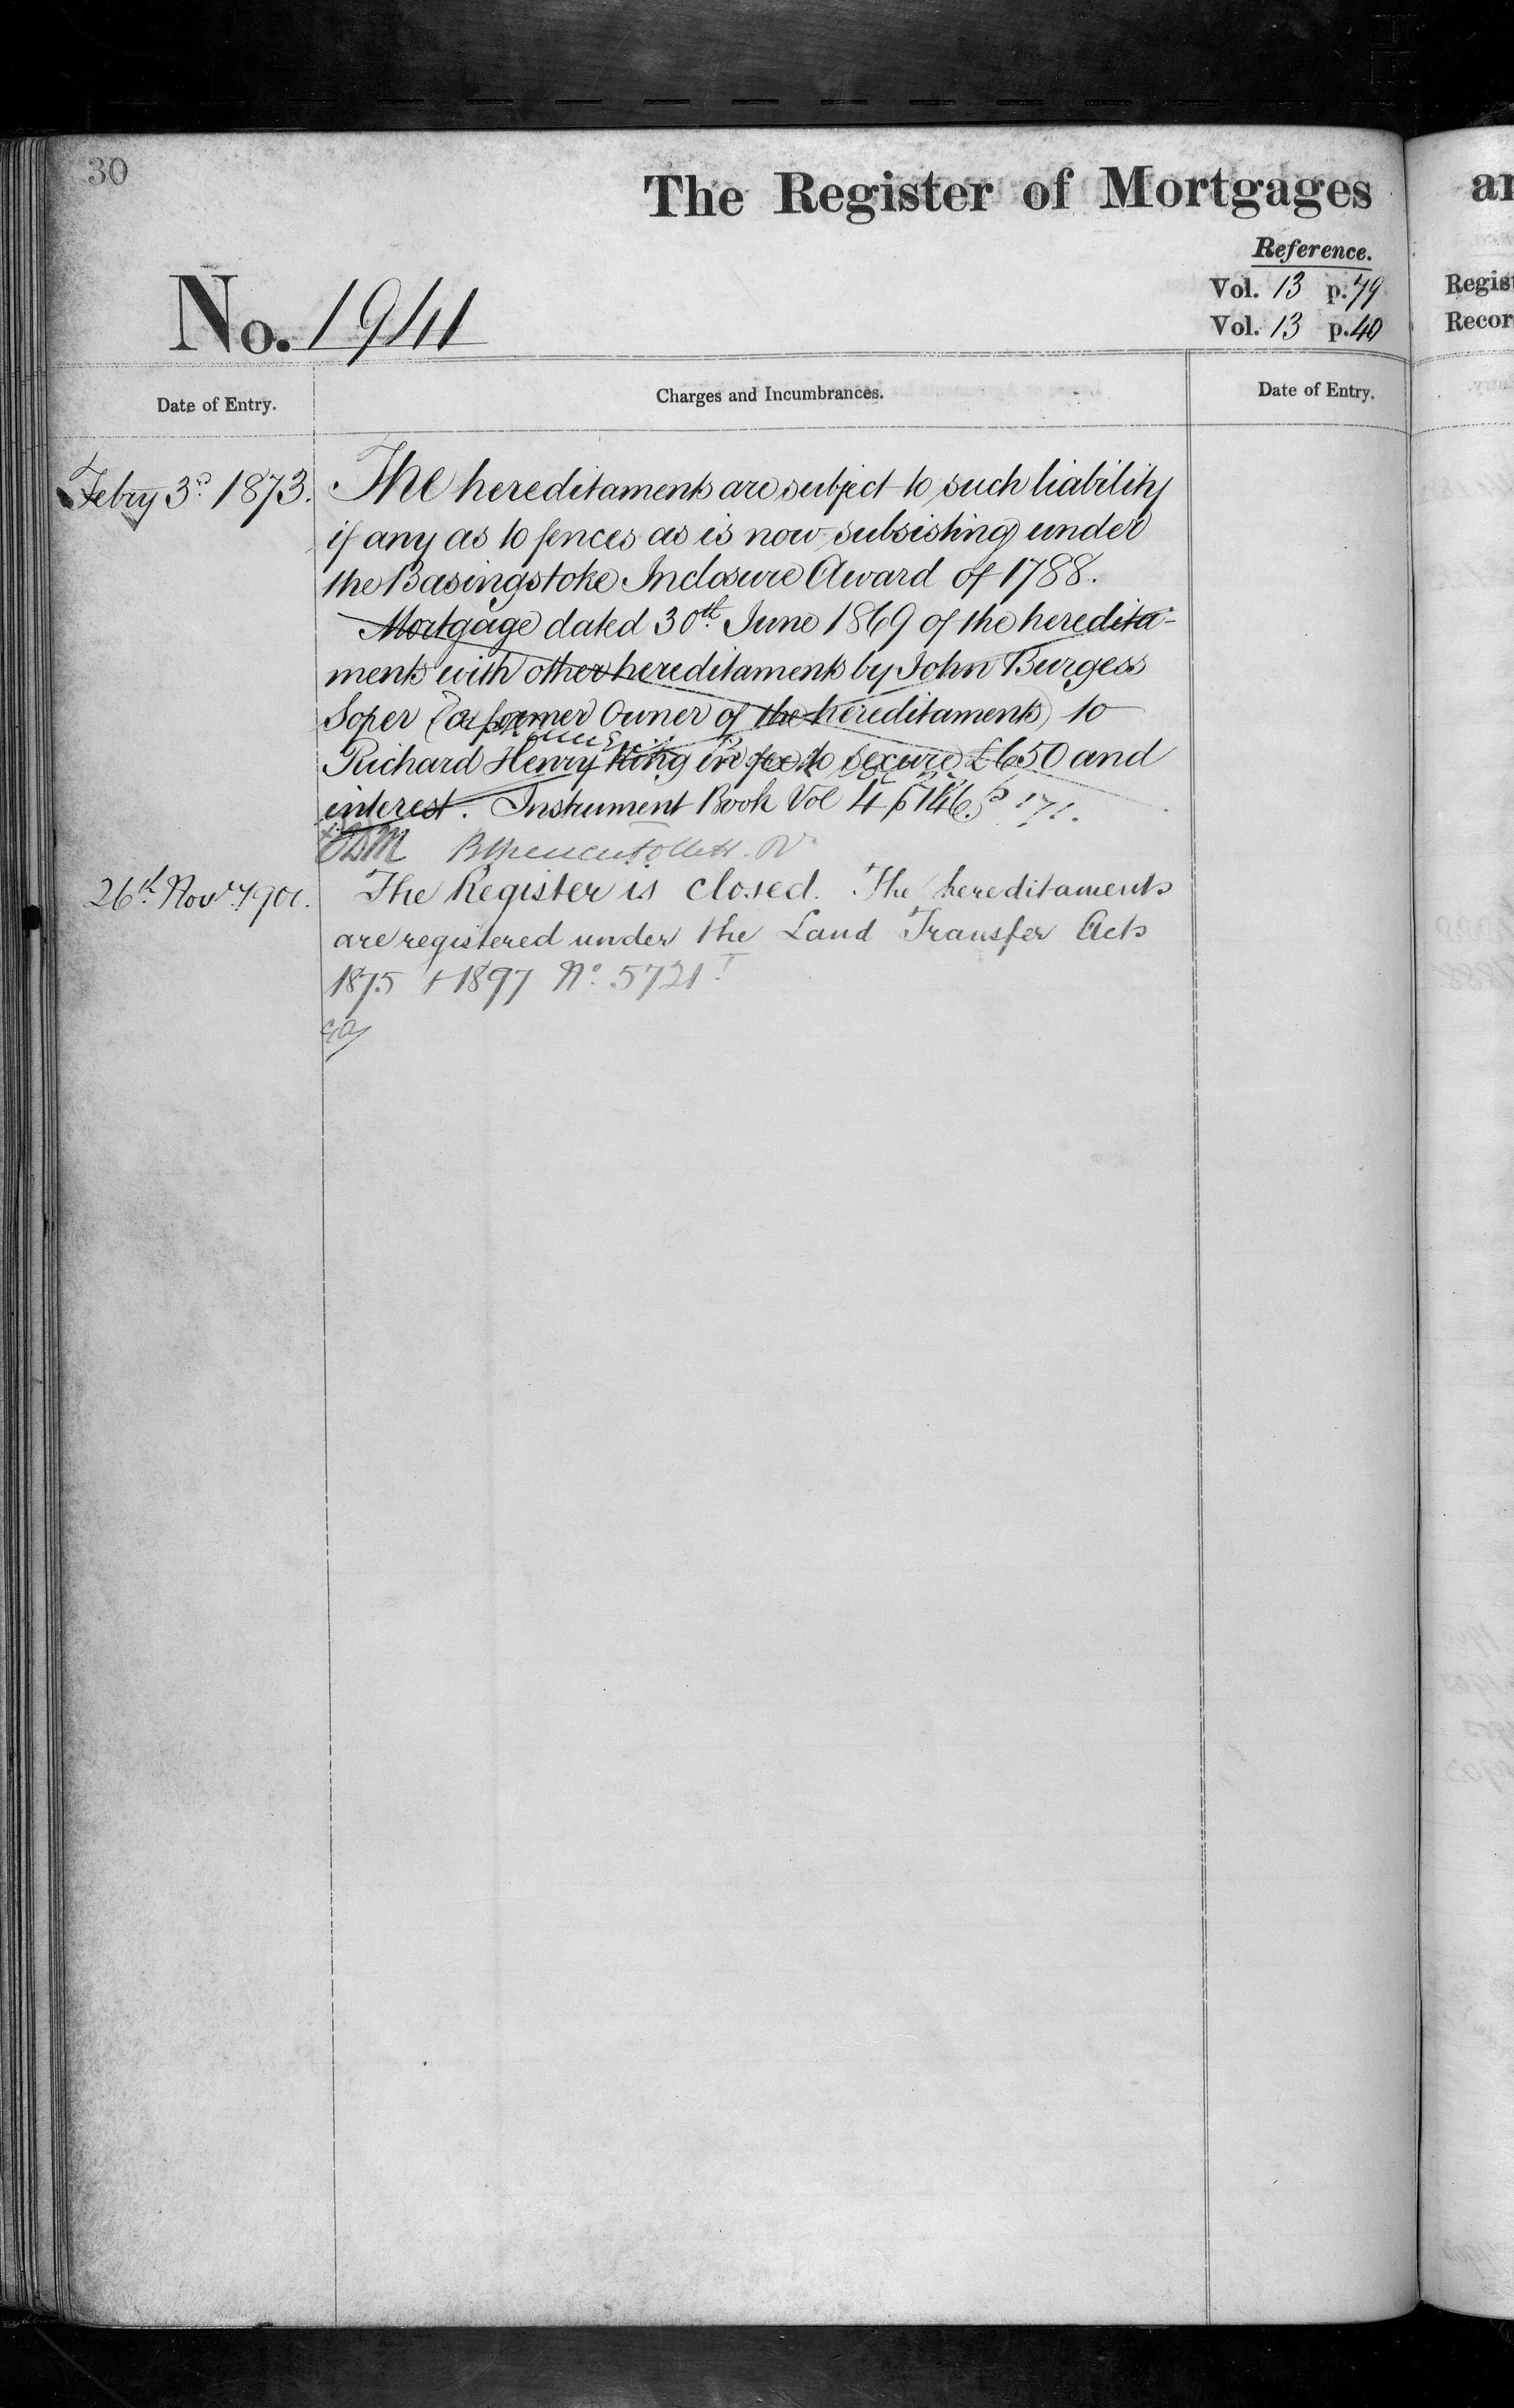 30
The Register of Mortgages
Reference.
Vol. 13 p. 79
Vol. 13 p. 40
No. 1941
Date of Entry.
Charges and Incumbrances.
Date of Entry.
Febry 3d. 1873.
The hereditaments are subject to such liability
if any as to fences as is now subsisting under
the Basingstoke Inclosure Award of 1788.
Mortgage dated 30th June 1869 of the heredita-
ments with other hereditaments by John Burgess
Soper (a former Owner of the hereditaments) to
Richard Henry King in fee to secure £650 and
interest. Instrument Book Vol 4 p 146.
26th Novr. 1901.
The Register is closed. The hereditaments
are registered under the Land Transfer Acts
1875 + 1897 No. 5721
Regis
Recor